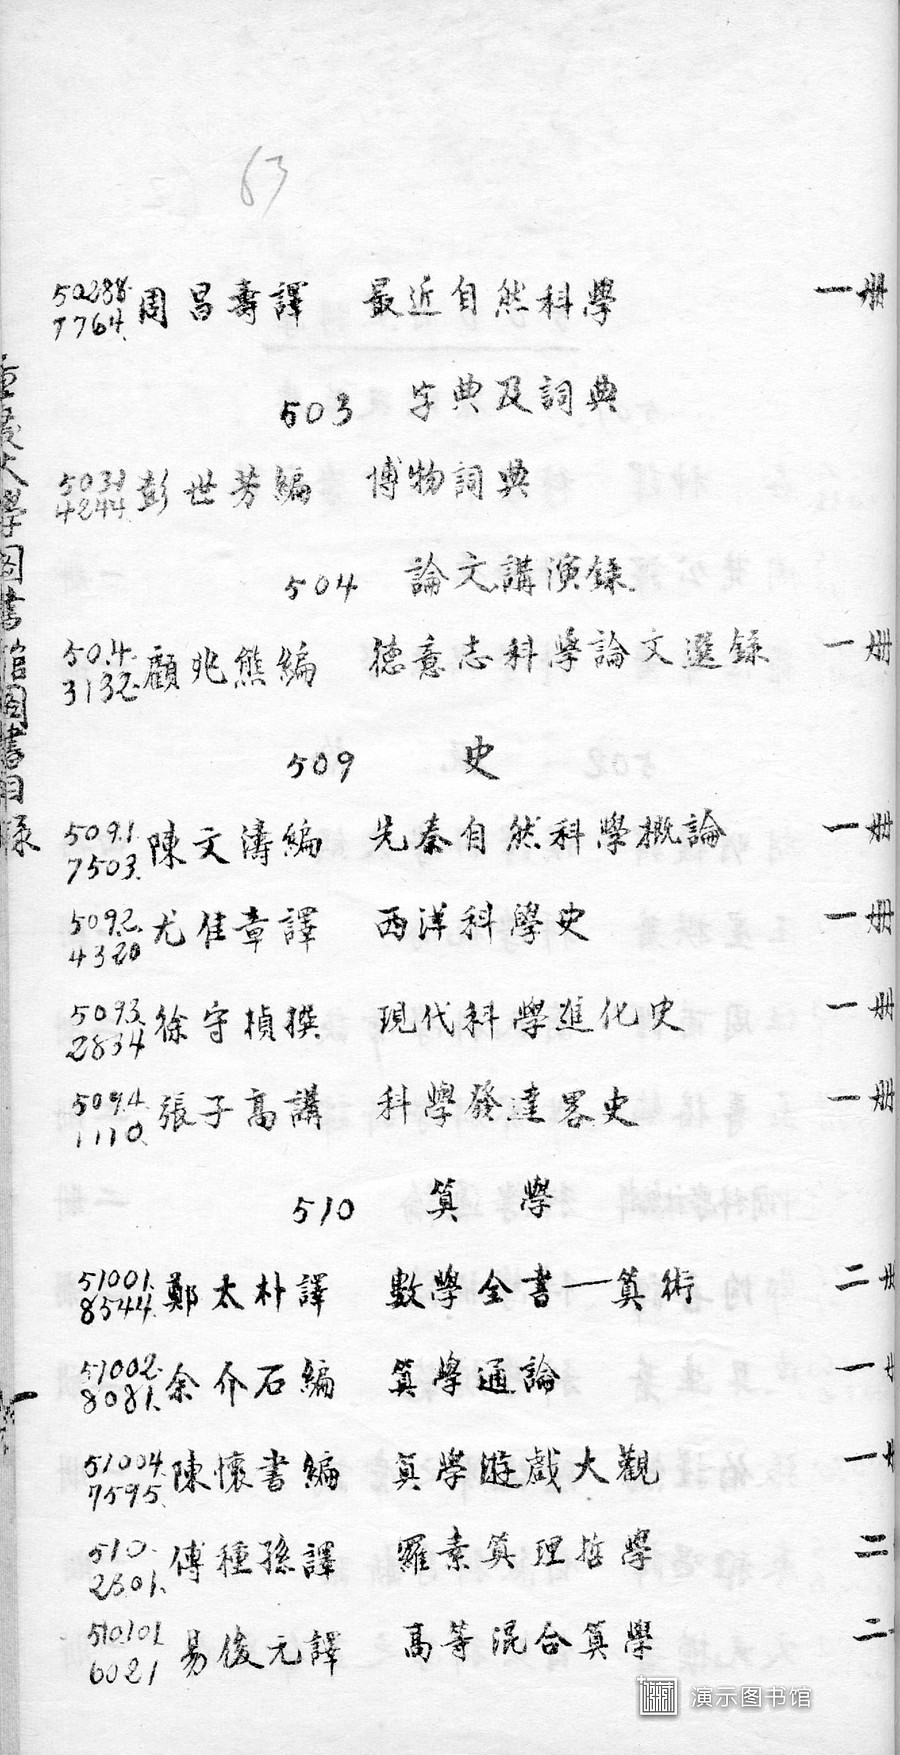 63
50288 周昌壽譯 最近自然科學 一册
7764
503 字典及詞典
5031 彭世芳編 博物詞典
4244
504 論文講演録
50.4 顧兆熊編 德意志科學論文選録 一册
3132
509 史
509.1 陳文濤編 先秦自然科學概論 一册
7503
509.2 尤佳章譯 西洋科學史 一册
4320
509.3 徐守楨撰 現代科學進化史 一册
2834
509.4 張子高講 科學發達畧史 一册
1110
510 算學
51001 鄭太朴譯 數學全書—算術 二册
8544
51002 余介石編 算學通論 一
8081
51004 陳懷書編 算學遊戲大觀 一
7595
510 傅種孫譯 羅素算理哲學 二
510.101 易俊元譯 高等混合算學 二
6021
重慶大學圖書館圖書目録
演示图书馆